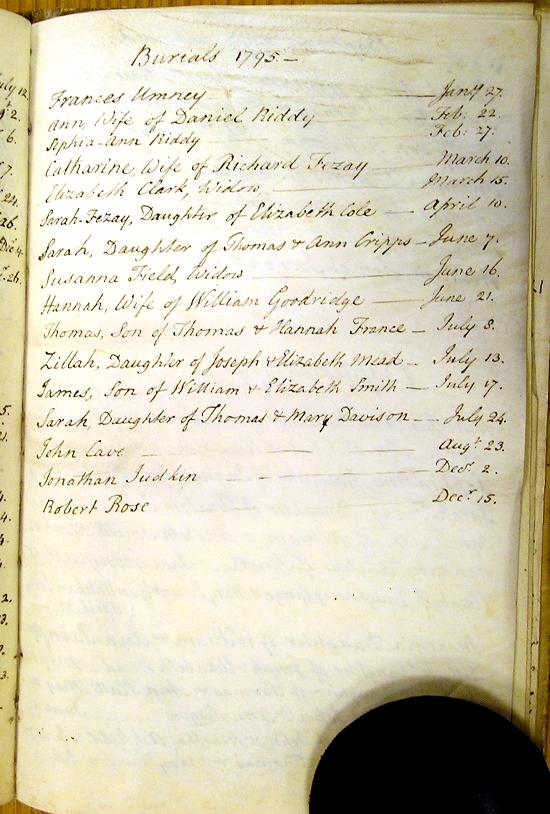 Burials 1795.—
Frances Umney — Jany 27.
Ann, Wife of Daniel Riddy — Feb: 22.
Sophia-Ann Riddy — Feb: 27.
Catharine, Wife of Richard Fezay — March 10.
Elizabeth Clark, Widow — March 15.
Sarah-Fezay, Daughter of Elizabeth Cole — April 10.
Sarah, Daughter of Thomas & Ann Cripps — June 7.
Susanna Field, Widow — June 16.
Hannah, Wife of William Goodridge — June 21.
Thomas, Son of Thomas & Hannah France — July 8.
Zillah, Daughter of Joseph & Elizabeth Mead — July 13.
James, Son of William & Elizabeth Smith — July 17.
Sarah, Daughter of Thomas & Mary Davison — July 24.
John Cave — Augt 23.
Jonathan Judkin — Decr 2.
Robert Rose — Decr 15.